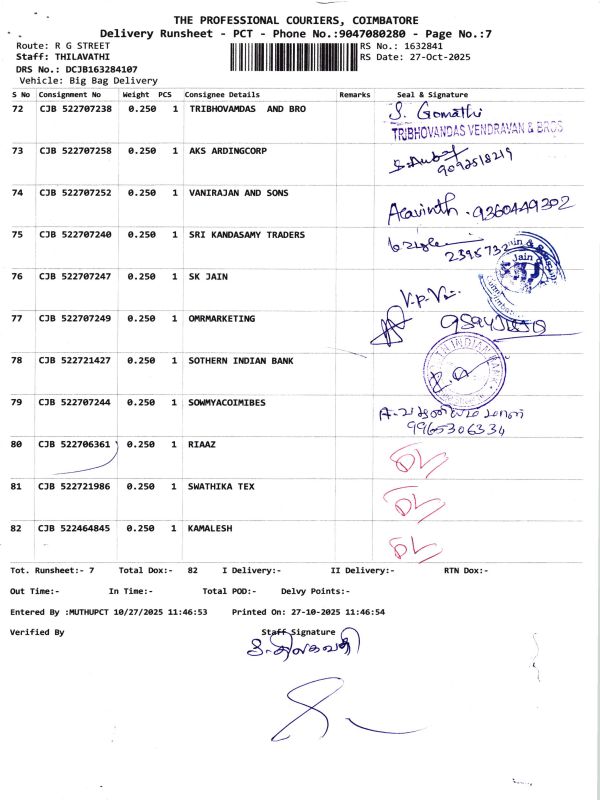 THE PROFESSIONAL COURIERS, COIMBATORE
Delivery Runsheet - PCT - Phone No.:9047080280 - Page No.:7
Route: R G STREET RS No.: 1632841
Staff: THILAVATHI RS Date: 27-Oct-2025
DRS No.: DCJB163284107
Vehicle: Big Bag Delivery
S No Consignment No Weight PCS Consignee Details Remarks Seal & Signature
72 CJB 522707238 0.250 1 TRIBHOVAMDAS AND BRO S. Gomathi
TRIBHOVANDAS VENDRAVAN & BROS
73 CJB 522707258 0.250 1 AKS ARDINGCORP
9092518219
74 CJB 522707252 0.250 1 VANIRAJAN AND SONS
Aravinth - 9360449302
75 CJB 522707240 0.250 1 SRI KANDASAMY TRADERS
2395732
Jain
76 CJB 522707247 0.250 1 SK JAIN
77 CJB 522707249 0.250 1 OMRMARKETING
78 CJB 522721427 0.250 1 SOTHERN INDIAN BANK
79 CJB 522707244 0.250 1 SOWMYACOIMIBES
9965306334
80 CJB 522706361 0.250 1 RIAAZ DL
81 CJB 522721986 0.250 1 SWATHIKA TEX DL
82 CJB 522464845 0.250 1 KAMALESH DL
Tot. Runsheet:- 7 Total Dox:- 82 I Delivery:- II Delivery:- RTN Dox:-
Out Time:- In Time:- Total POD:- Delvy Points:-
Entered By :MUTHUPCT 10/27/2025 11:46:53 Printed On: 27-10-2025 11:46:54
Verified By Staff Signature
உ.திலகவதி